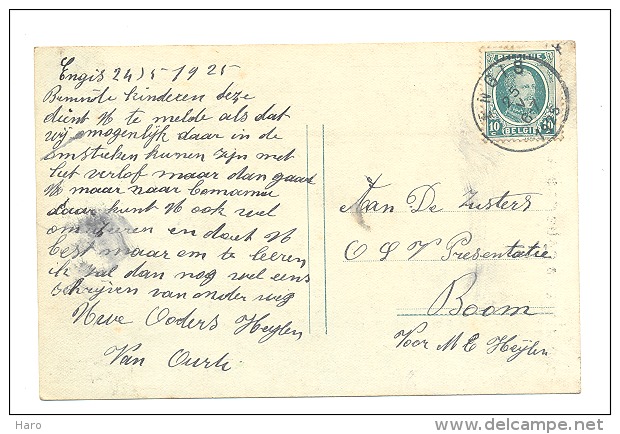 Engis 24/5 1925
Beminde kinderen deze
dient U te melde als dat
wij omogenlijk daar in de
omstreken kunen zijn met
het verlof maar dan gaat
U maar naar bomama
daar kunt U ook wel
en doet U
best maar om te leeren
ik zal dan nog wel eens
schrijven van onder weg
Uwe Ouders Heylen
Van
BELGIQUE
10
BELGIË
ENGIS
25
V
1925
Aan De Zusters
O L V Presentatie
Boom
Voor M E Heylen
Haro
www.delcampe.net